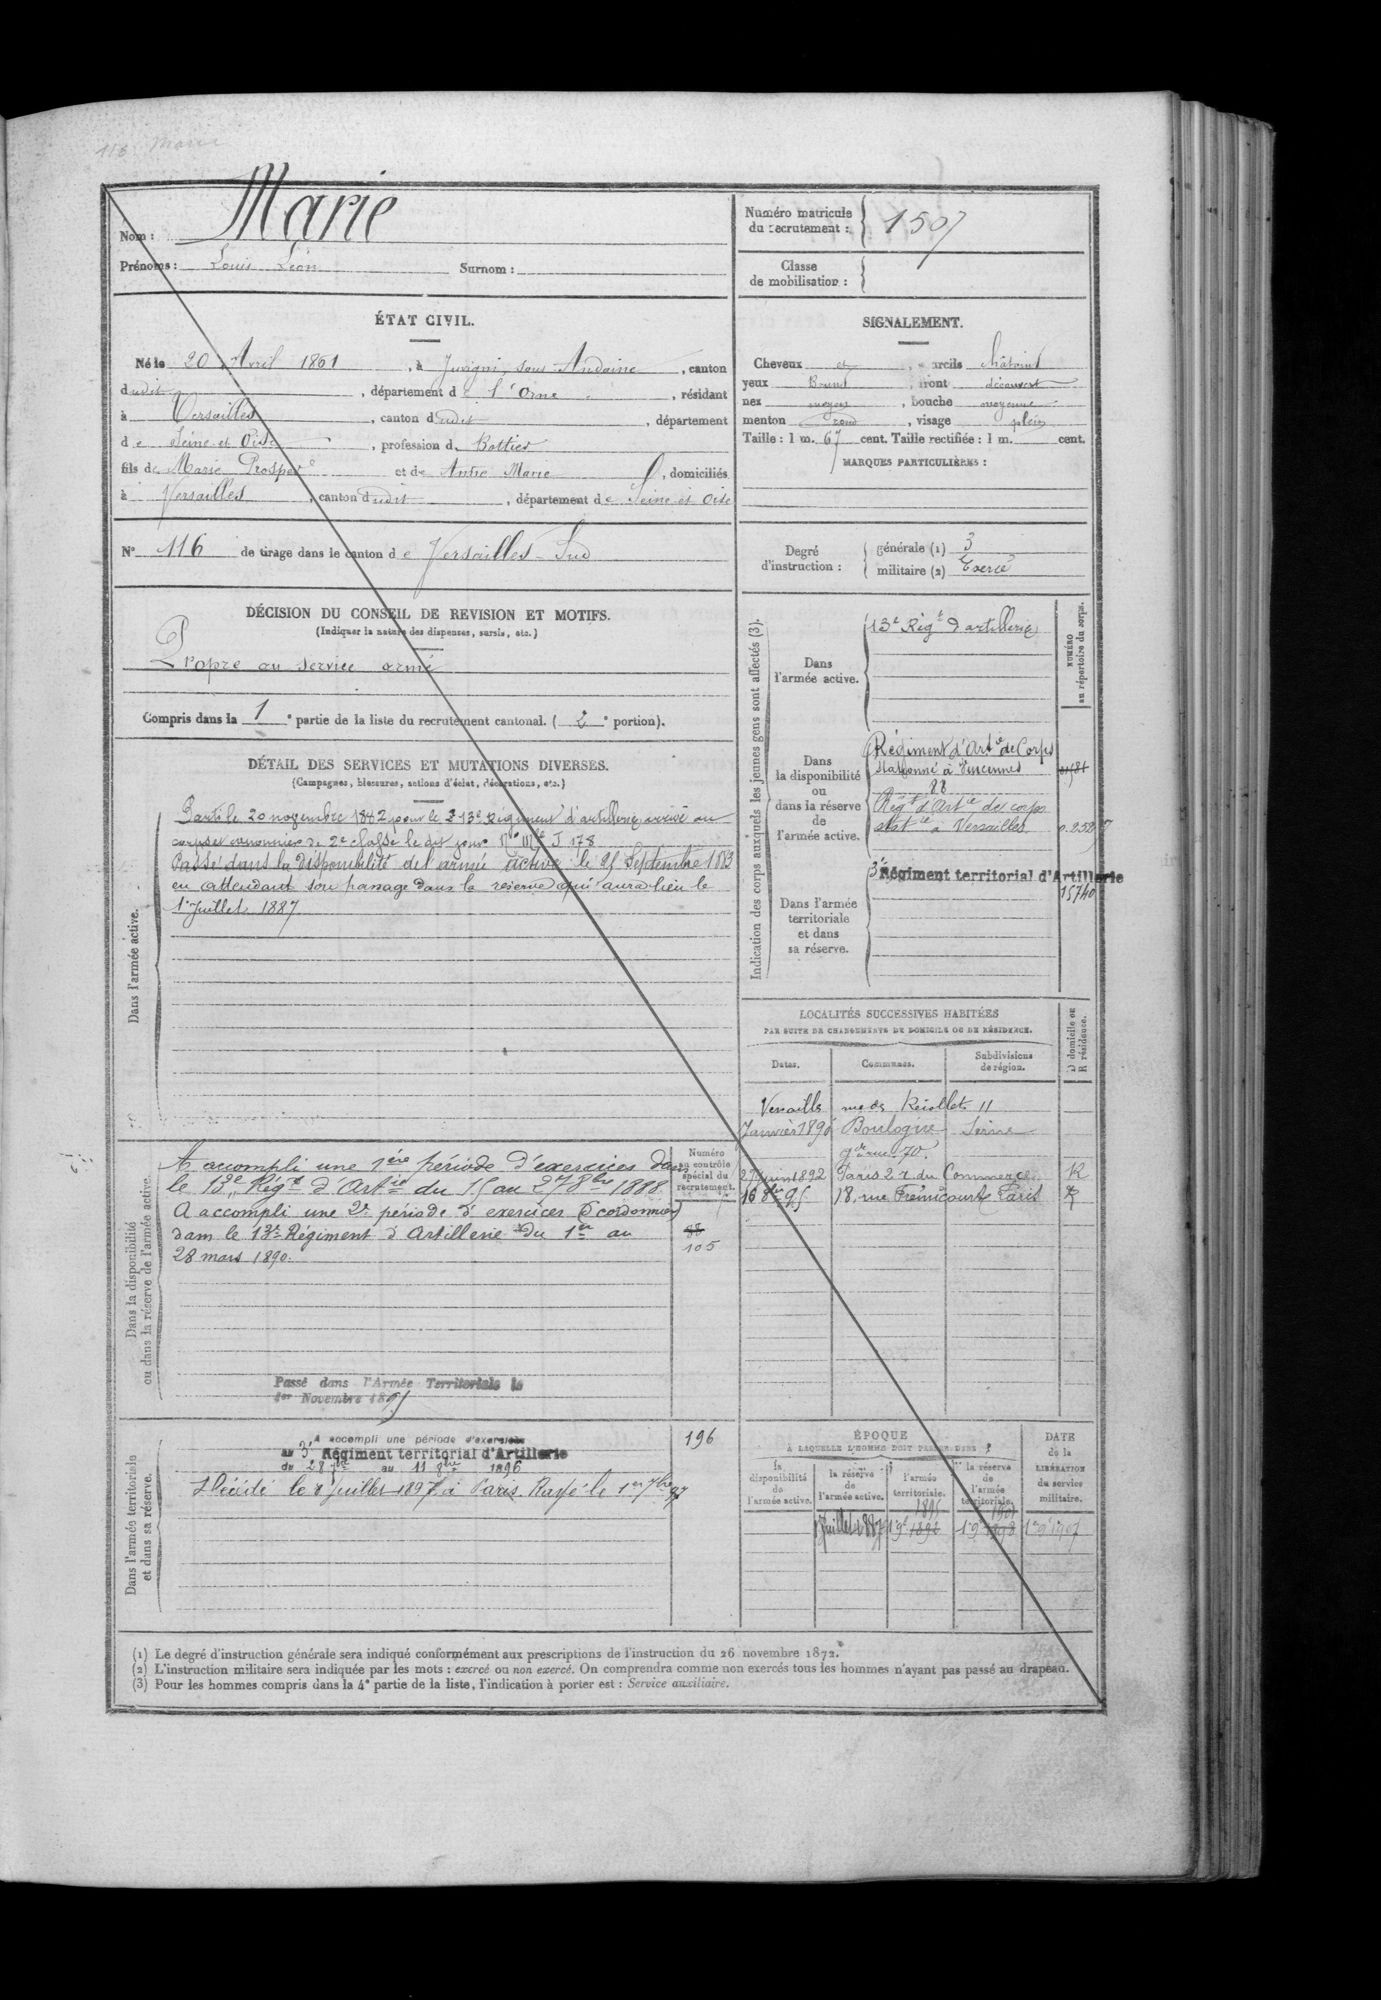 116 Marie
Nom : Marie
Prénoms : Louis Léon Surnom :
Numéro matricule du recrutement : 1507
Classe de mobilisation :
ÉTAT CIVIL.
Né le 20 Avril 1861, à Juvigni sous Andaine, canton
dudit, département de l'Orne, résidant
à Versailles, canton dudit, département
de Seine et Oise, profession de Bottier
fils de Marie Prosper et de Antre Marie, domiciliés
à Versailles, canton dudit, département de Seine et Oise
N° 116 de tirage dans le canton de Versailles-Sud
DÉCISION DU CONSEIL DE REVISION ET MOTIFS.
(Indiquer la nature des dispenses, sursis, etc.)
Propre au service armé
Compris dans la 1e partie de la liste du recrutement cantonal. (2e portion).
SIGNALEMENT.
Cheveux et sourcils châtains
yeux Bruns, front découvert
nez moyen, bouche moyenne
menton rond, visage plein
Taille : 1 m. 67 cent. Taille rectifiée : 1 m. cent.
MARQUES PARTICULIÈRES :
Degré d'instruction :
générale (1) 3
militaire (2) Exercé
Indication des corps auxquels les jeunes gens sont affectés (3).
NUMÉRO au répertoire du corps.
Dans l'armée active.
13e Régt d'artillerie
Dans la disponibilité ou dans la réserve de l'armée active.
Régiment d'Artie de Corps
stationné à Vincennes
88
Régt d'Artie de corps
statné à Versailles
Dans l'armée territoriale et dans sa réserve.
3e Régiment territorial d'Artillerie
15740
DÉTAIL DES SERVICES ET MUTATIONS DIVERSES.
(Campagnes, blessures, actions d'éclat, décorations, etc.)
Dans l'armée active.
Parti le 20 novembre 1882 pour le 13e Régiment d'artillerie arrivé au
corps et canonnier de 2e classe le dit jour No Mle J 178
Passé dans la disponibilité de l'armée active le 25 Septembre 1883
en attendant son passage dans la réserve qui aura lieu le
1er Juillet 1887
LOCALITÉS SUCCESSIVES HABITÉES
PAR SUITE DE CHANGEMENTS DE DOMICILE OU DE RÉSIDENCE.
Dates. Communes. Subdivisions de région. D domicile ou R résidence.
Versailles rue des Récollets 11
Janvier 1890 Boulogne Seine
gde rue 70.
27 juin 1892 Paris 2 r du Commerce R
16 8bre 95 18, rue Frémicourt Paris R
Dans la disponibilité ou dans la réserve de l'armée active.
Numéro au contrôle spécial du recrutement.
A accompli une 1ère période d'exercices dans
le 13e Régt d'Artie du 15 au 27 8bre 1888
A accompli une 2e période d'exercices (Cordonnier)
dans le 13e Régiment d'Artillerie du 1er au
28 mars 1890.
88
105
Passé dans l'Armée Territoriale le
1er Novembre 1895
Dans l'armée territoriale et dans sa réserve.
A accompli une période d'exercices
au 3e Régiment territorial d'Artillerie
du 28 7bre au 11 8bre 1896
196
Décédé le 8 Juillet 1897 à Paris. Rayé le 1er 7bre 97
ÉPOQUE
À LAQUELLE L'HOMME DOIT PASSER DANS :
la disponibilité de l'armée active.
la réserve de l'armée active.
l'armée territoriale.
la réserve de l'armée territoriale.
DATE de la LIBÉRATION du service militaire.
1895 1901
1 Juillet 1887 1 9e 1892 1 9e 1898 1er 9e 1907
(1) Le degré d'instruction générale sera indiqué conformément aux prescriptions de l'instruction du 26 novembre 1872.
(2) L'instruction militaire sera indiquée par les mots : exercé ou non exercé. On comprendra comme non exercés tous les hommes n'ayant pas passé au drapeau.
(3) Pour les hommes compris dans la 4e partie de la liste, l'indication à porter est : Service auxiliaire.